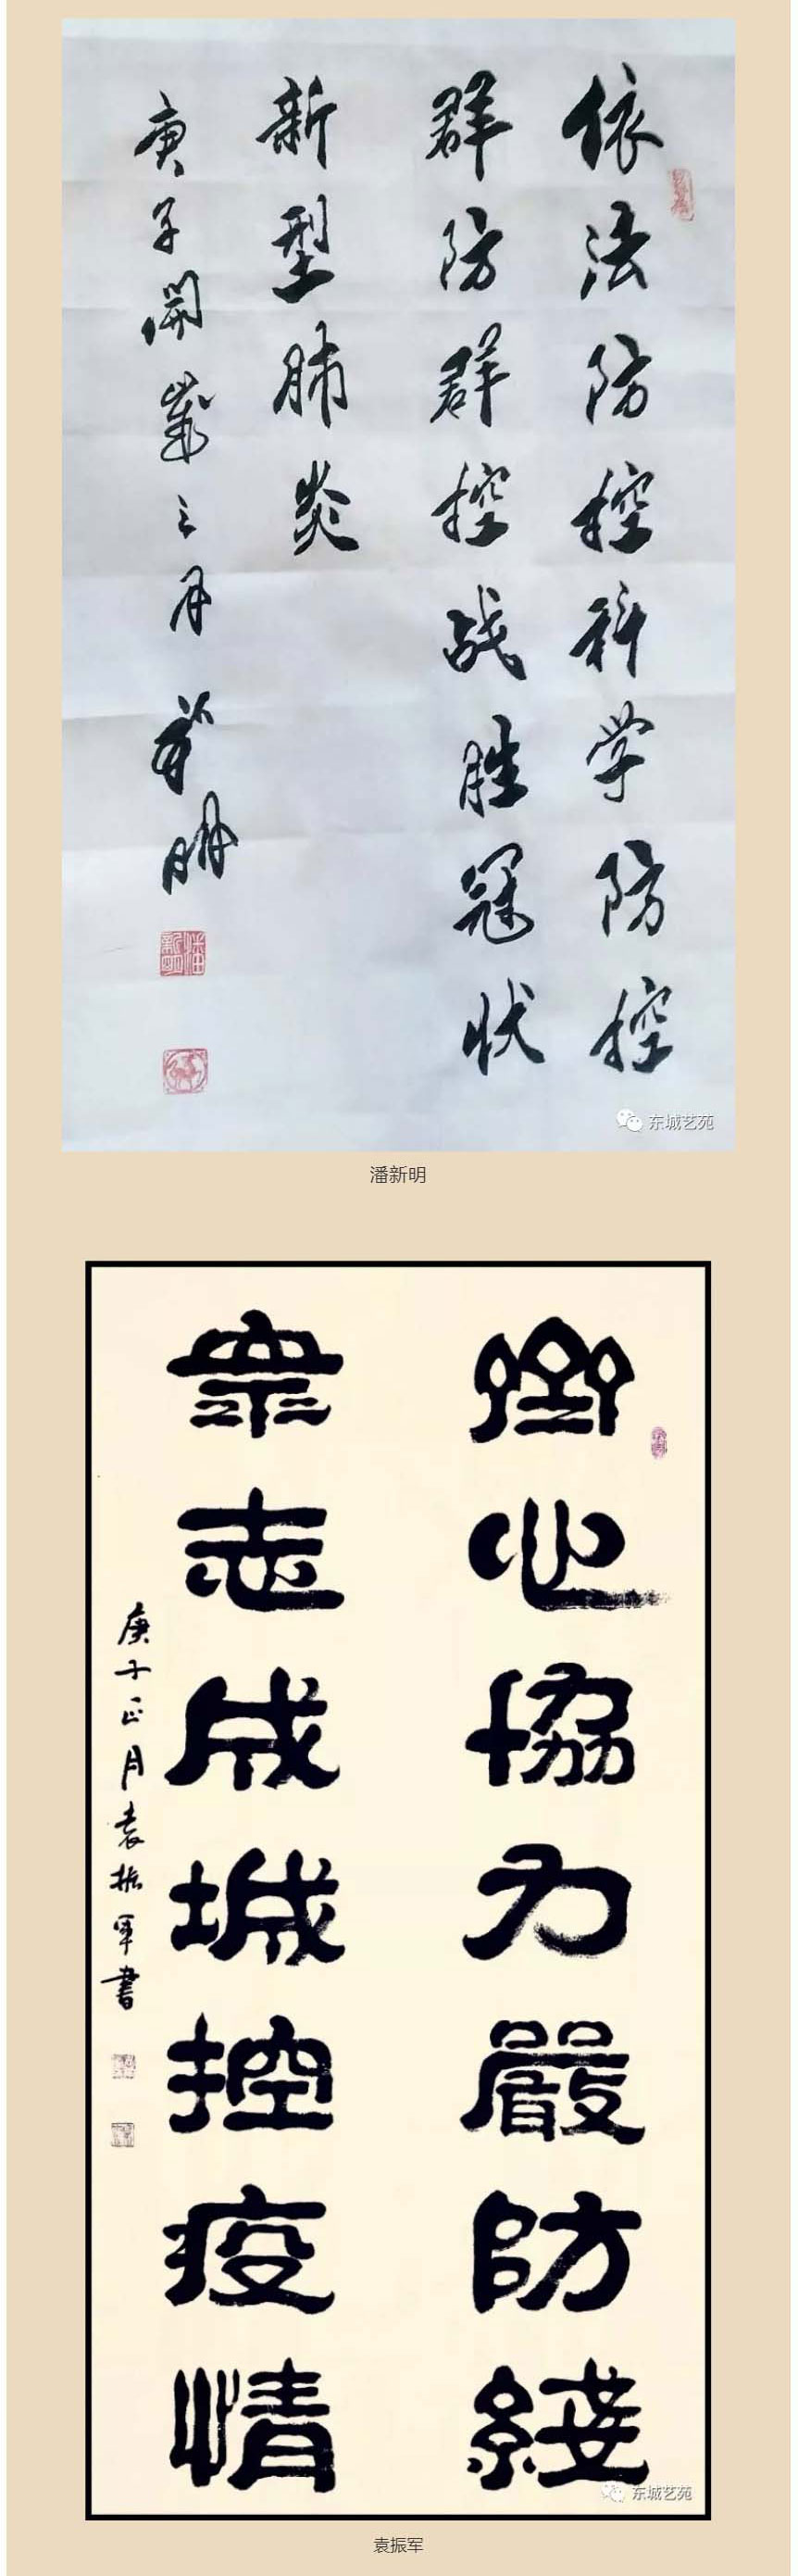 依法防控科学防控
群防群控战胜冠状
新型肺炎
庚子開歲之月新明
潘新明
东城艺苑
潘新明
齊心協力嚴防綫
衆志成城控疫情
庚子正月袁振軍書
东城艺苑
袁振军